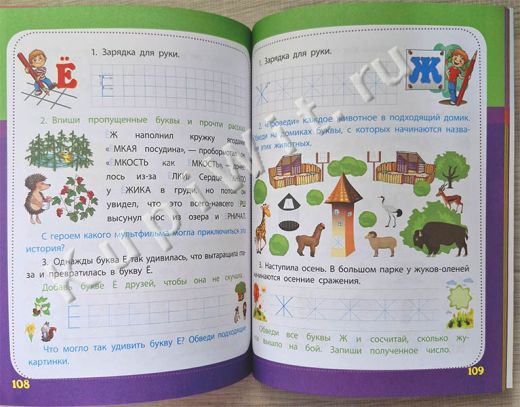 1. Зарядка для руки.
Ё
Ё
2. Впиши пропущенные буквы и прочти
ЁЖ наполнил кружку ягодами
«ЁМКАЯ посудина», —
ЁМКОСТЬ как ЁМКОСТЬ», —
лось из-за ЁЛКИ. Сердце
у ЁЖИКА в груди, но потом он
увидел, что это всего-навсего ЁРШ
высунул нос из озера и ЁРНИЧАЛ.
С героем какого мультфильма могла приключиться эта
история?
3. Однажды буква Е так удивилась, что вытаращила гла-
за и превратилась в букву Ё.
Добавь букве Ё друзей, чтобы она не скучала.
Ё
Что могло так удивить букву Е? Обведи подходящие
картинки.
108
1. Зарядка для руки.
Ж
Ж
2. «Проведи» каждое животное в подходящий домик.
на домиках буквы, с которых начинаются назва-
этих животных.
3. Наступила осень. В большом парке у жуков-оленей
начинаются осенние сражения.
Ж Ж Ж Ж Ж
Обведи все буквы Ж и сосчитай, сколько жу-
вышло на бой. Запиши полученное число.
109